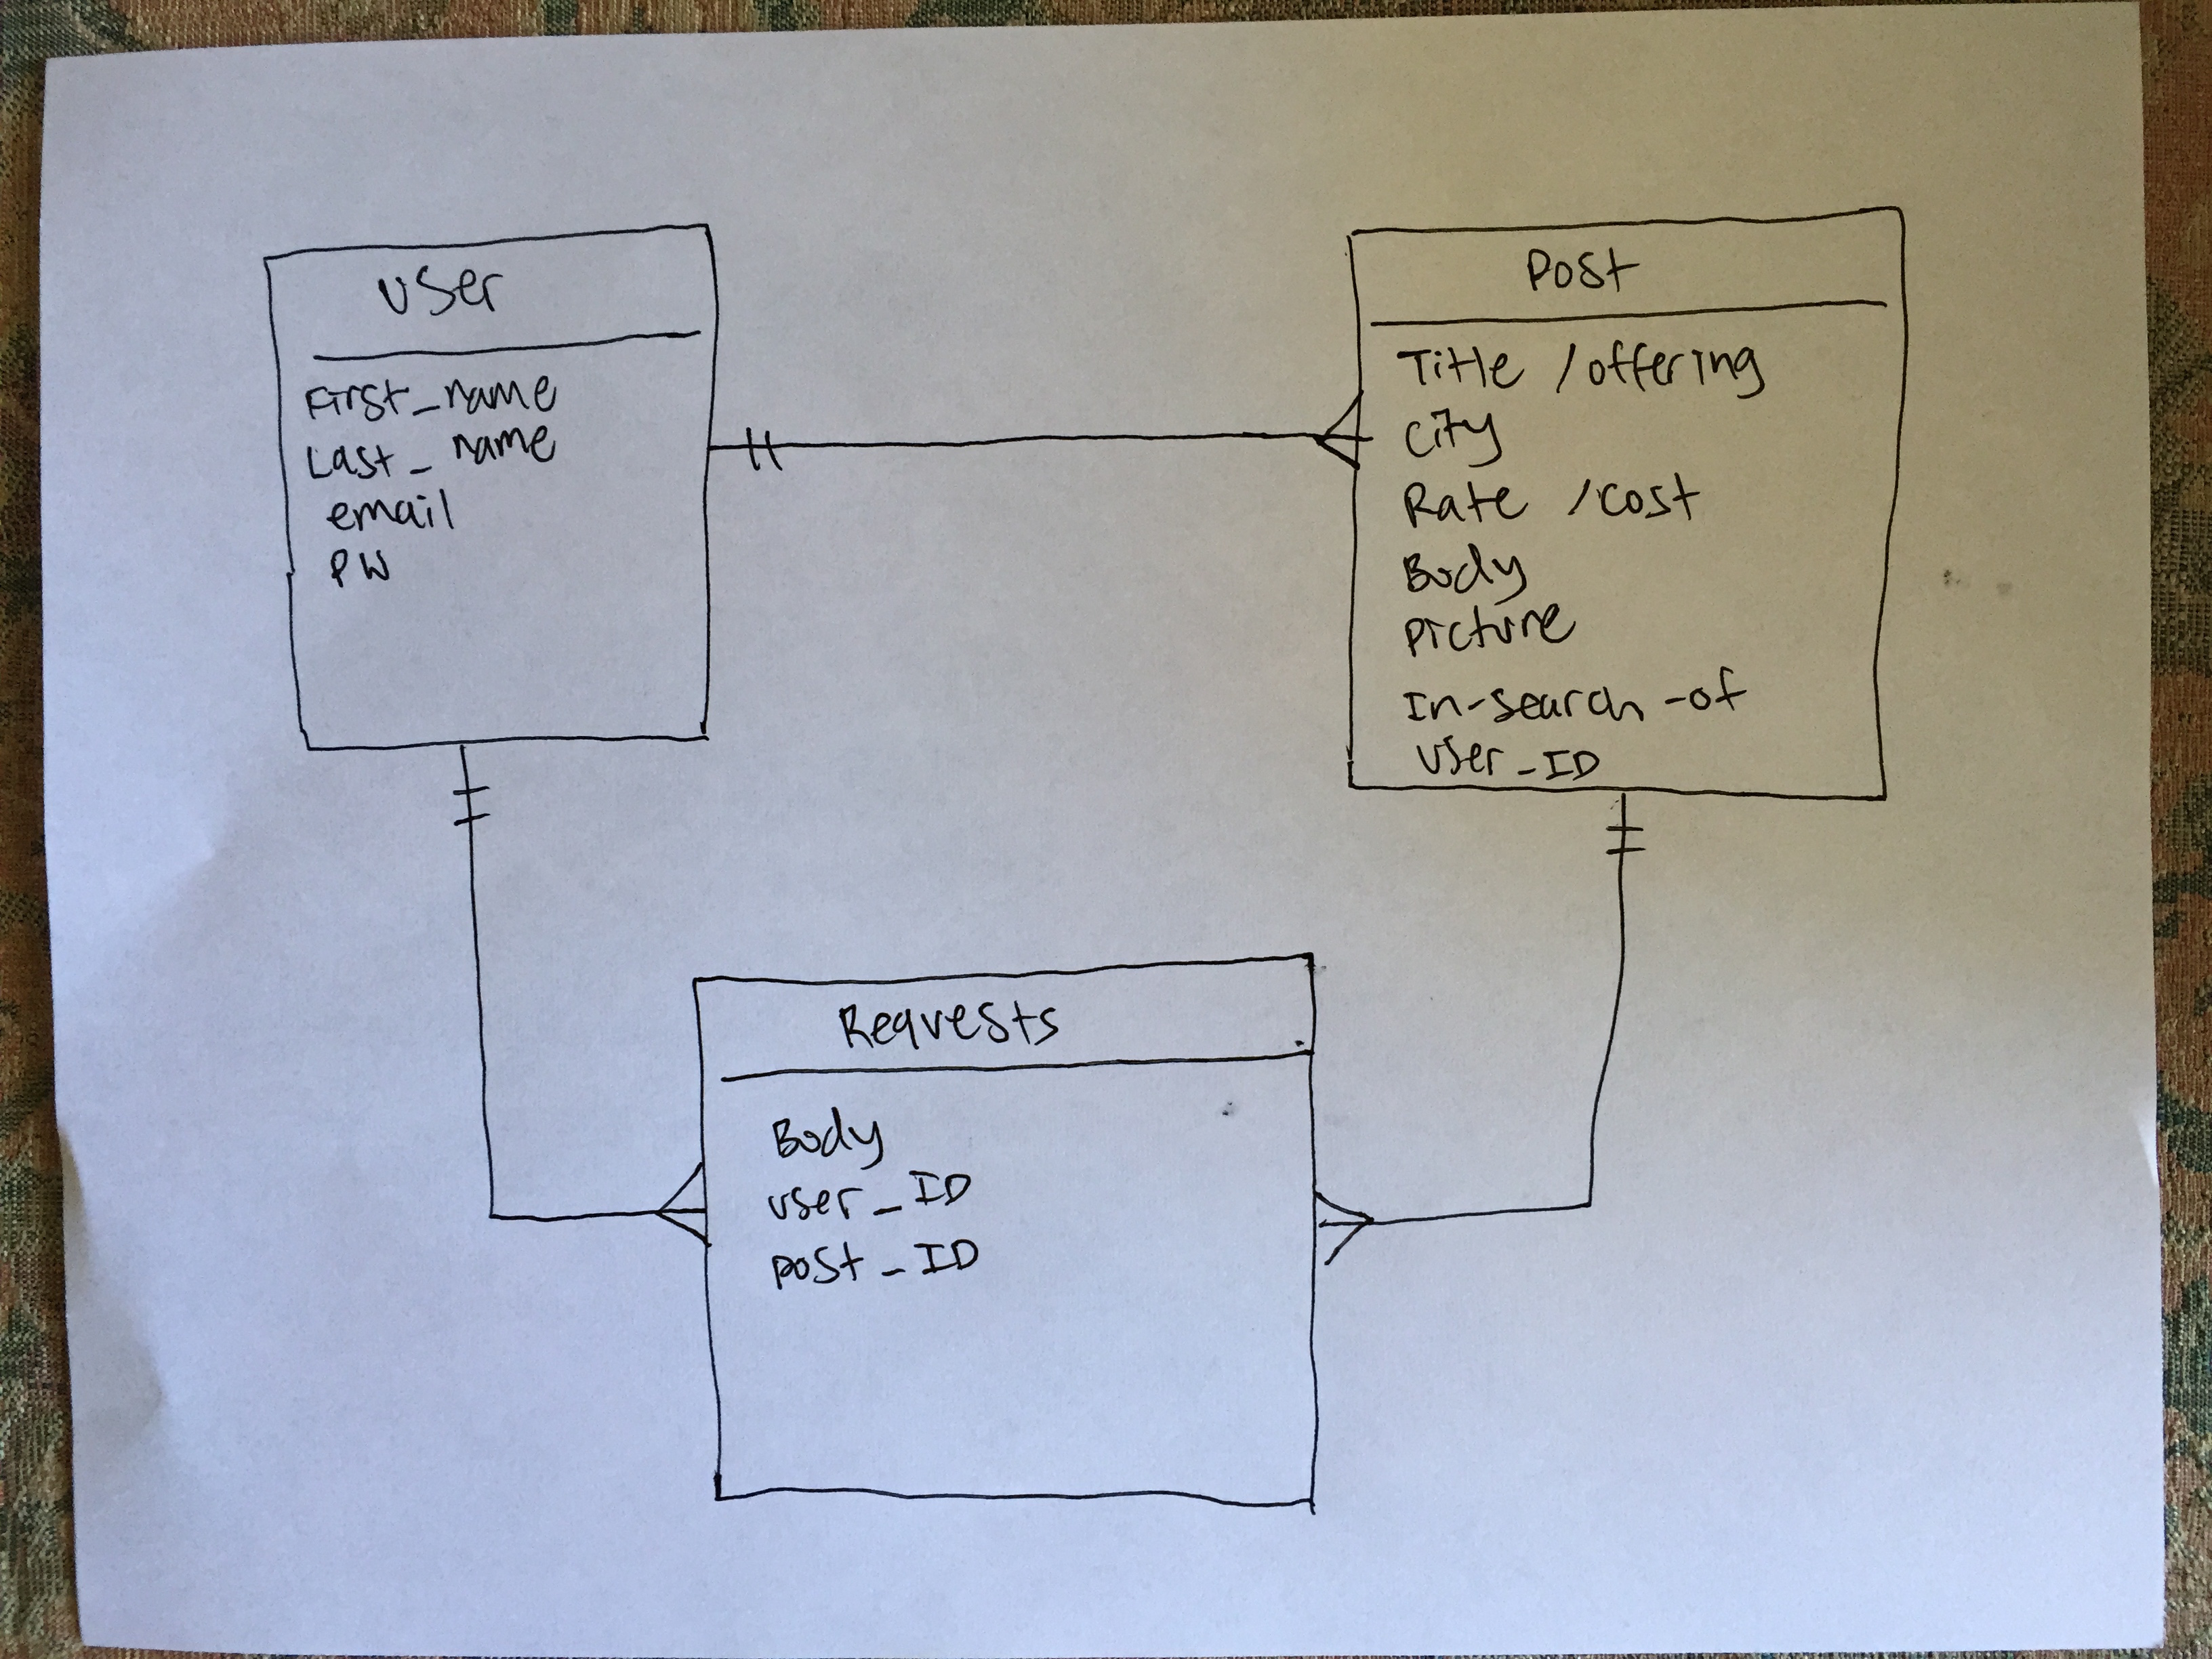 User
First_name
Last_name
email
PW
Post
Title /offering
City
Rate /cost
Body
Picture
In-search-of
User_ID
Requests
Body
user_ID
post_ID